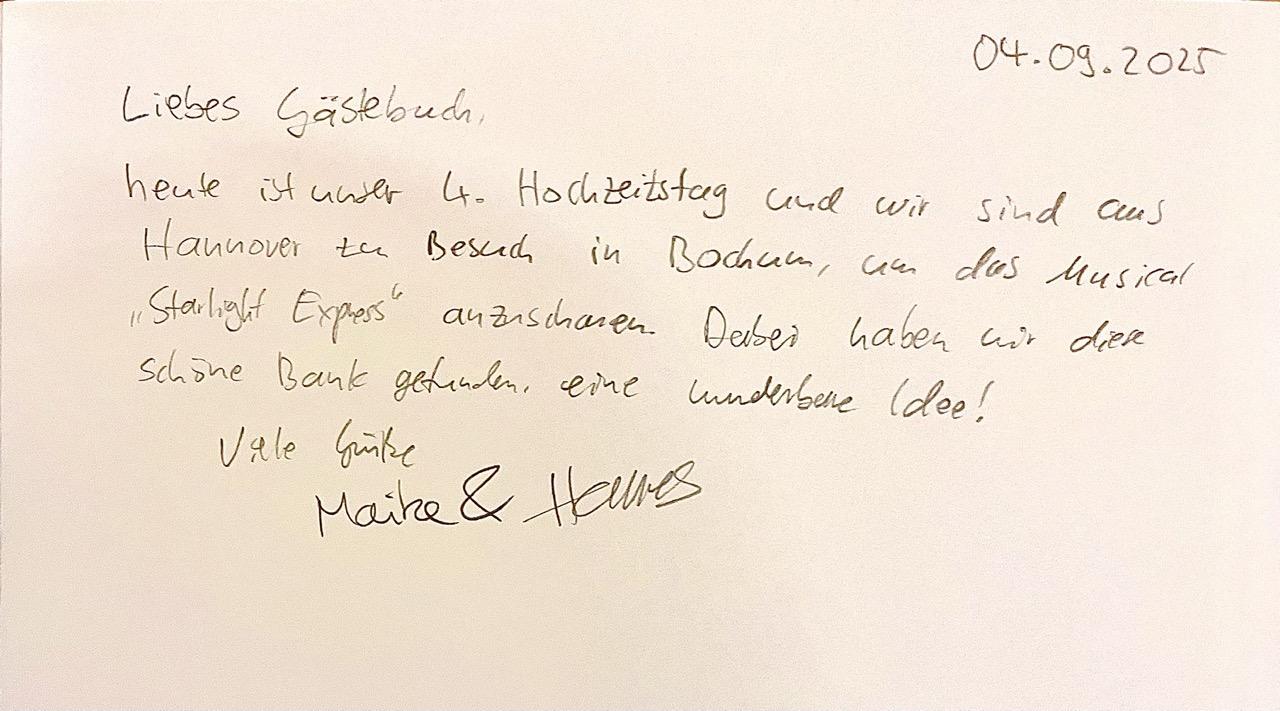 04.09.2025
Liebes Gästebuch,
heute ist unser 4. Hochzeitstag und wir sind aus
Hannover zu Besuch in Bochum, um das Musical
„Starlight Express“ anzuschauen. Dabei haben wir diese
schöne Bank gefunden. eine wunderbare Idee!
Viele Grüße
Maike & Hannes